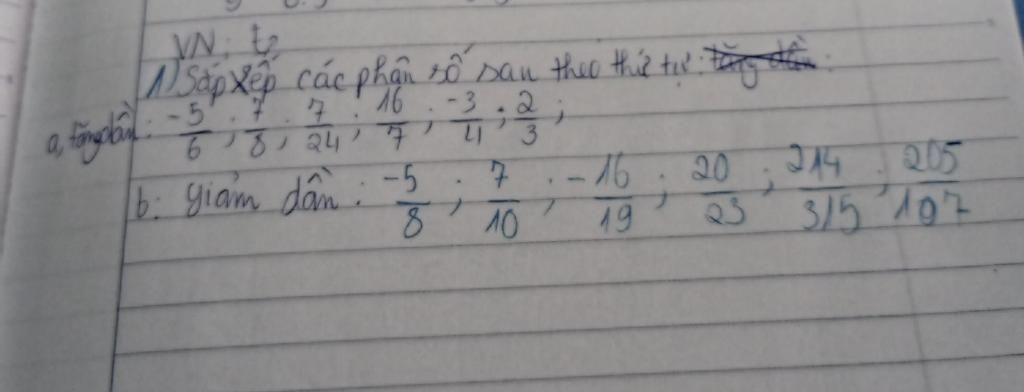 VN: t2
1) Sắp xếp các phân số sau theo thứ tự: tăng dần:
a, tăng dần: -5/6; 7/8; 7/24; 16/7; -3/4; 2/3;
b: giảm dần: -5/8; 7/10; -16/19; 20/23; 214/315; 205/107